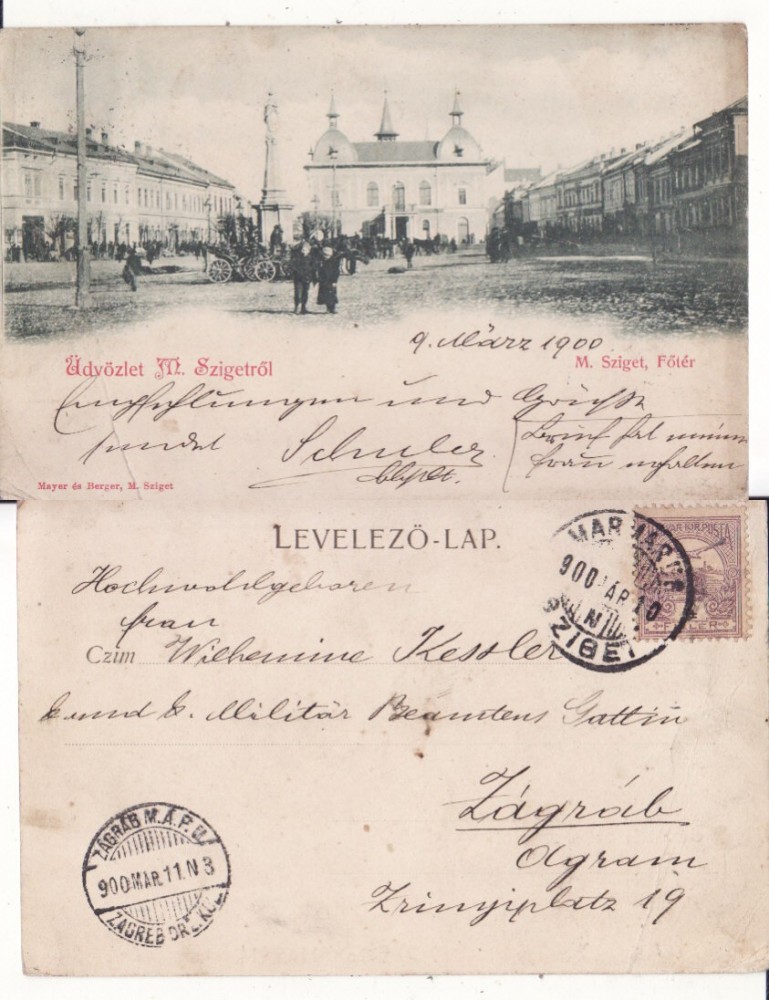 9. März 1900
Üdvözlet M. Szigetről
M. Sziget, Főtér
Empfehlungen und Grüße
sendet Schuler
Brief hat meine
Frau erhalten
Mayer és Berger, M. Sziget
LEVELEZŐ-LAP.
MAGYAR KIR. POSTA
FILLÉR
MARMAROS
900 MÁR 10
N
SZIGET
Hochwohlgeboren
frau
Czim Wilhemine Kessler
k und k. Militär Beamtens Gattin
Zágráb
Agram
Zrinyiplatz 19
ZÁGRÁB M.Á.P.U.
900 MAR. 11. N 3
ZAGREB DRŽ. KOL.